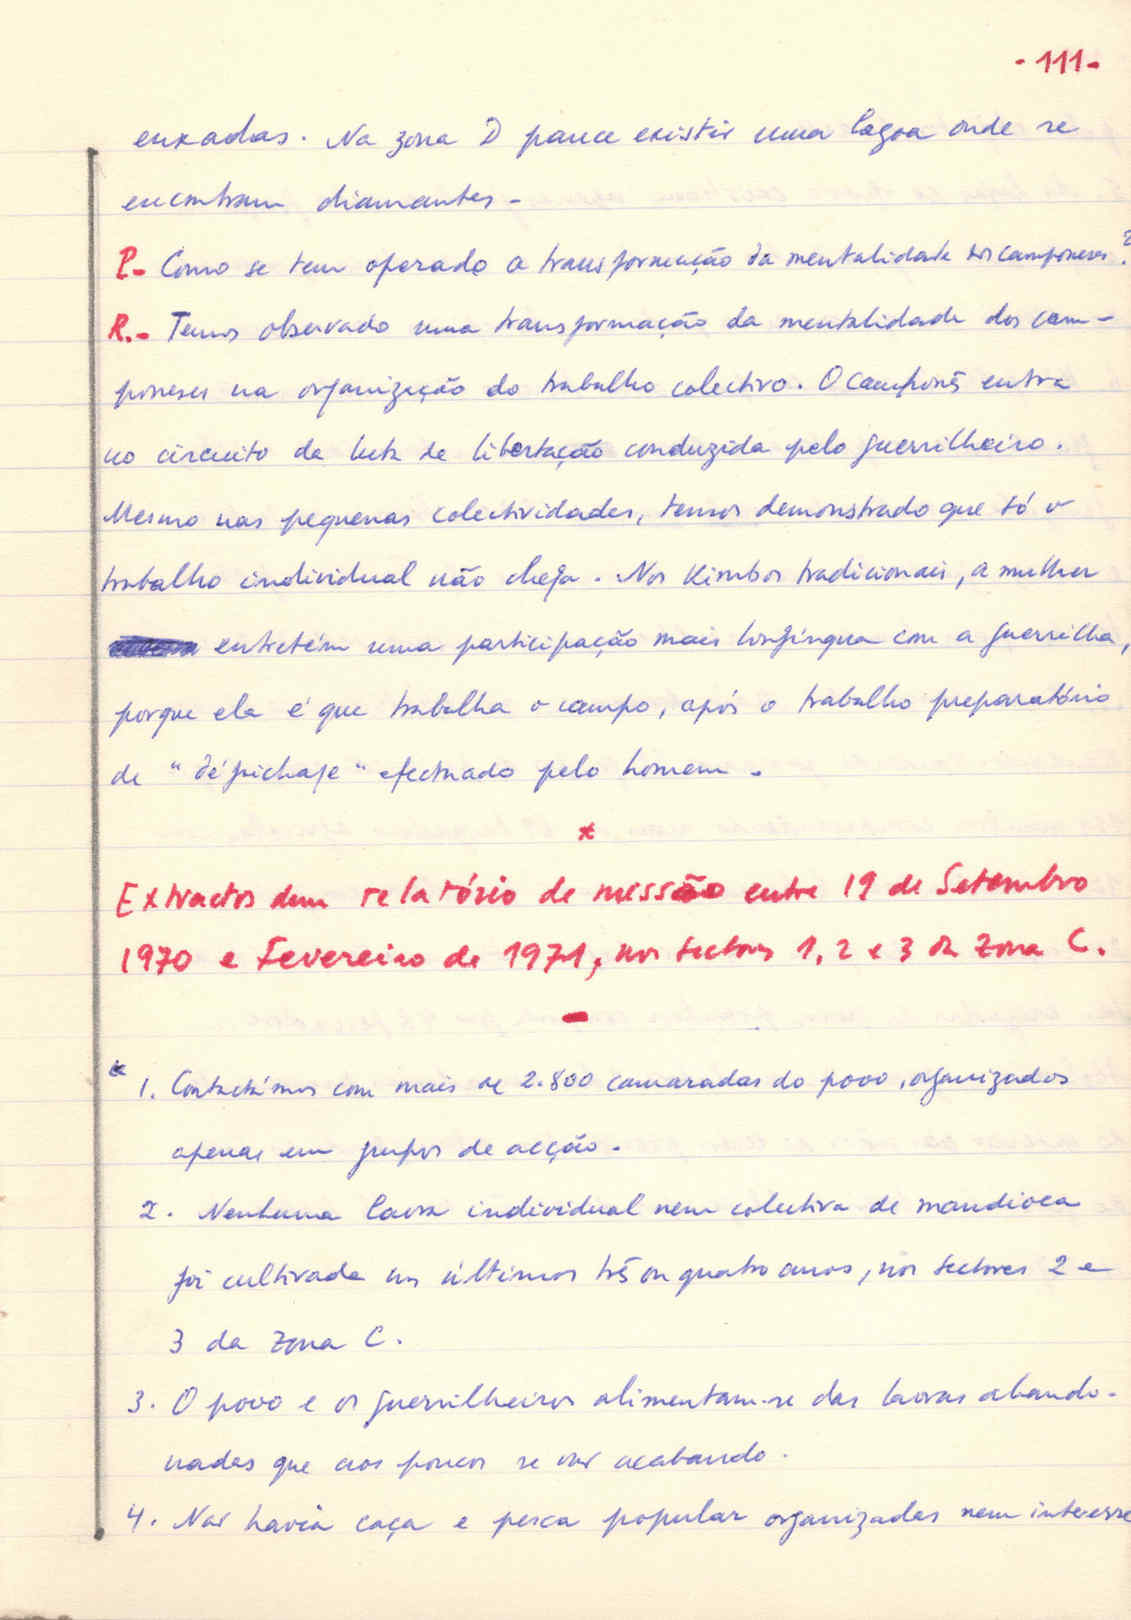 - 111 -
enxadas. Na zona D parece existir uma lagoa onde se
encontram diamantes -
P. - Como se tem operado a transformação da mentalidade dos camponeses?
R. - Temos observado uma transformação da mentalidade dos cam-
poneses na organização do trabalho colectivo. O camponês entra
no circuito da luta de libertação conduzida pelo guerrilheiro.
Mesmo nas pequenas colectividades, temos demonstrado que só o
trabalho individual não chega. Nos Kimbos tradicionais, a mulher
entretém uma participação mais longínqua com a guerrilha,
porque ela é que trabalha o campo, após o trabalho preparatório
de "dépichage" efectuado pelo homem.
*
Extractos dum relatório de missão entre 19 de Setembro
1970 e Fevereiro de 1971, nos sectores 1, 2 e 3 da Zona C.
-
" 1. Contactámos com mais de 2.800 camaradas do povo, organizados
apenas em grupos de acção.
2. Nenhuma lavra individual nem colectiva de mandioca
foi cultivada nos últimos três ou quatro anos, nos sectores 2 e
3 da Zona C.
3. O povo e os guerrilheiros alimentam-se das lavras abando-
nadas que aos poucos se vão acabando.
4. Não havia caça e pesca popular organizadas nem interesse